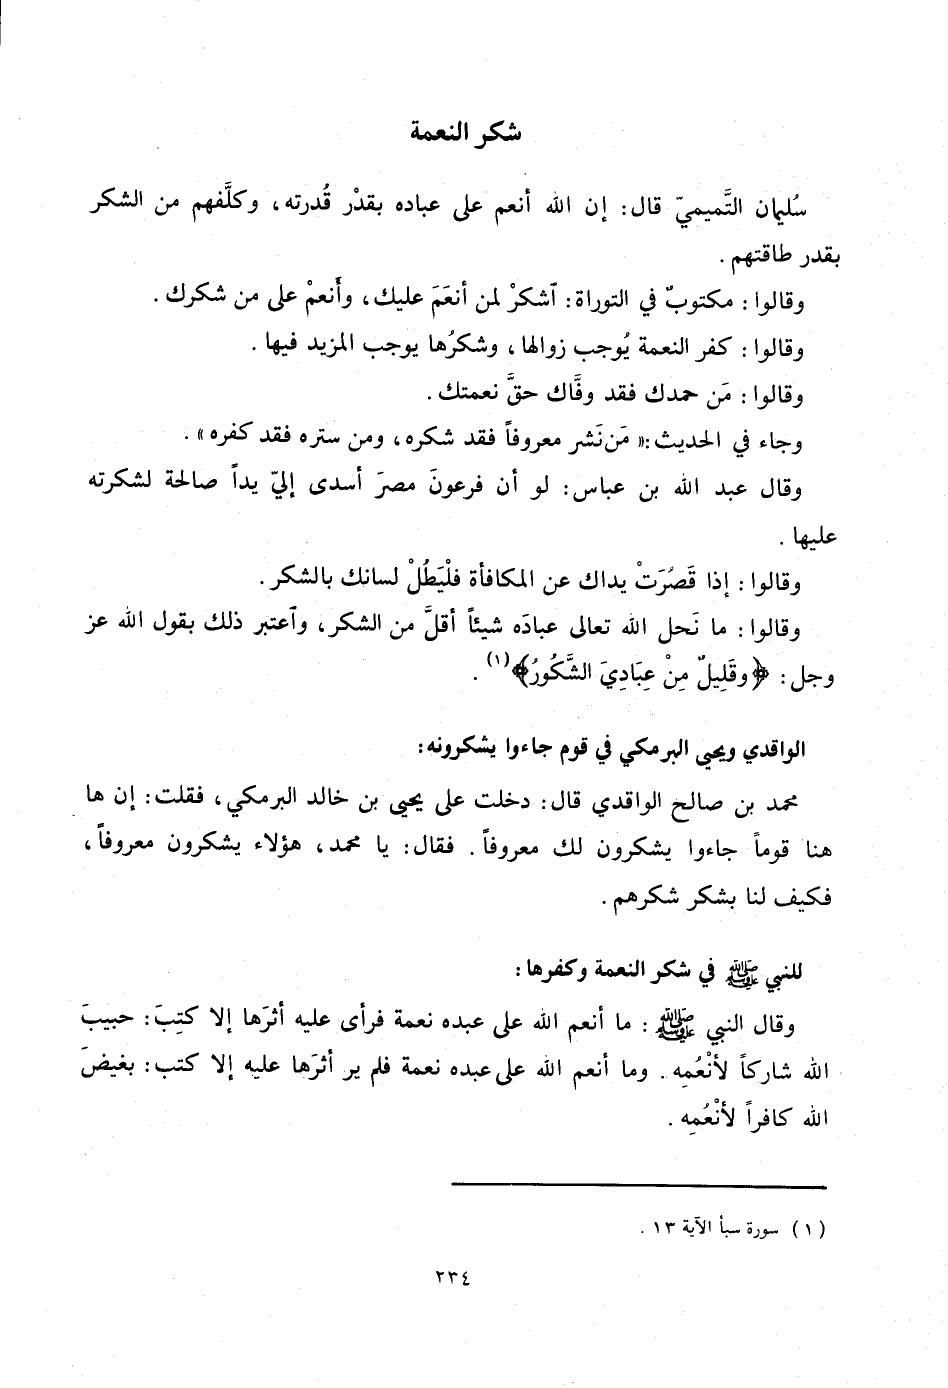 شكر النعمة
سُليمان التَّميميّ قال: إن الله أنعم على عباده بقدْر قُدرته، وكلَّفهم من الشكر
بقدر طاقتهم.
وقالوا: مكتوبٌ في التوراة: آشكرْ لمن أنعَمَ عليك، وأَنعمْ على من شكرك.
وقالوا: كفر النعمة يُوجب زوالها، وشكرُها يوجب المزيد فيها.
وقالوا: مَن حمدك فقد وفَّاك حقَّ نعمتك.
وجاء في الحديث: «مَن نَشر معروفاً فقد شكره، ومن ستره فقد كفره».
وقال عبد الله بن عباس: لو أن فرعونَ مصرَ أسدى إليّ يداً صالحة لشكرته
عليها.
وقالوا: إذا قَصُرَتْ يداك عن المكافأة فلْيَطُلْ لسانك بالشكر.
وقالوا: ما نَحل الله تعالى عبادَه شيئاً أقلَّ من الشكر، وآعتبر ذلك بقول الله عز
وجل: ﴿وقَلِيلٌ مِنْ عِبَادِيَ الشَّكُورُ﴾(١).
الواقدي ويحيى البرمكي في قوم جاءوا يشكرونه:
محمد بن صالح الواقدي قال: دخلت على يحيى بن خالد البرمكي، فقلت: إن ها
هنا قوماً جاءوا يشكرون لك معروفاً. فقال: يا محمد، هؤلاء يشكرون معروفاً،
فكيف لنا بشكر شكرهم.
للنبي ﷺ في شكر النعمة وكفرها:
وقال النبي ﷺ: ما أنعم الله على عبده نعمة فرأى عليه أثرَها إلا كتِبَ: حبيبَ
الله شاركاً لأنْعُمِه. وما أنعم الله على عبده نعمة فلم ير أثرَها عليه إلا كتب: بغيضَ
الله كافراً لأنْعُمِه.
(١) سورة سبأ الآية ١٣.
٢٣٤